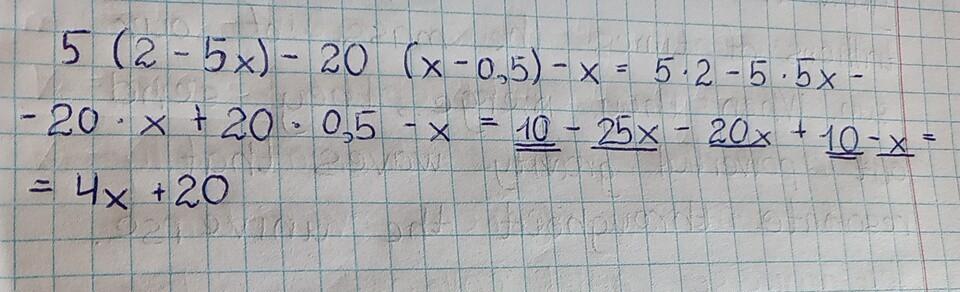 5 (2 - 5x) - 20 (x - 0,5) - x = 5 · 2 - 5 · 5x -
- 20 · x + 20 · 0,5 - x = 10 - 25x - 20x + 10 - x =
= 4x + 20